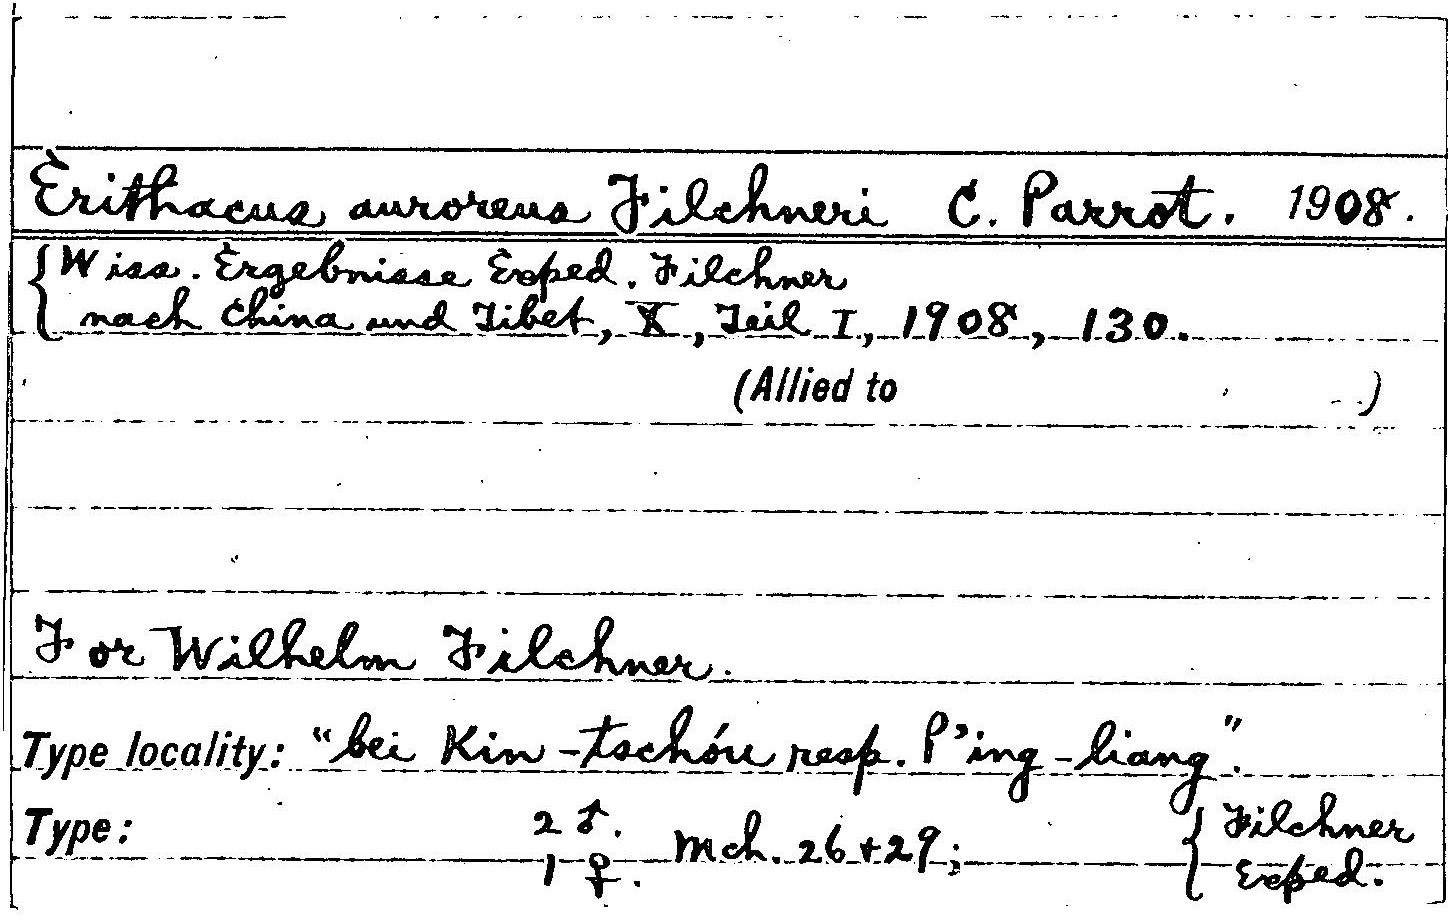 Erithacus auroreus Filchneri C. Parrot. 1908.
Wiss. Ergebnisse Exped. Filchner
nach China und Tibet, X, Teil I, 1908, 130.
(Allied to )
For Wilhelm Filchner.
Type locality: "bei Kin-tschóu resp. P'ing-liang".
Type: 2 ♂. 1 ♀. Mch. 26+29; Filchner Exped.